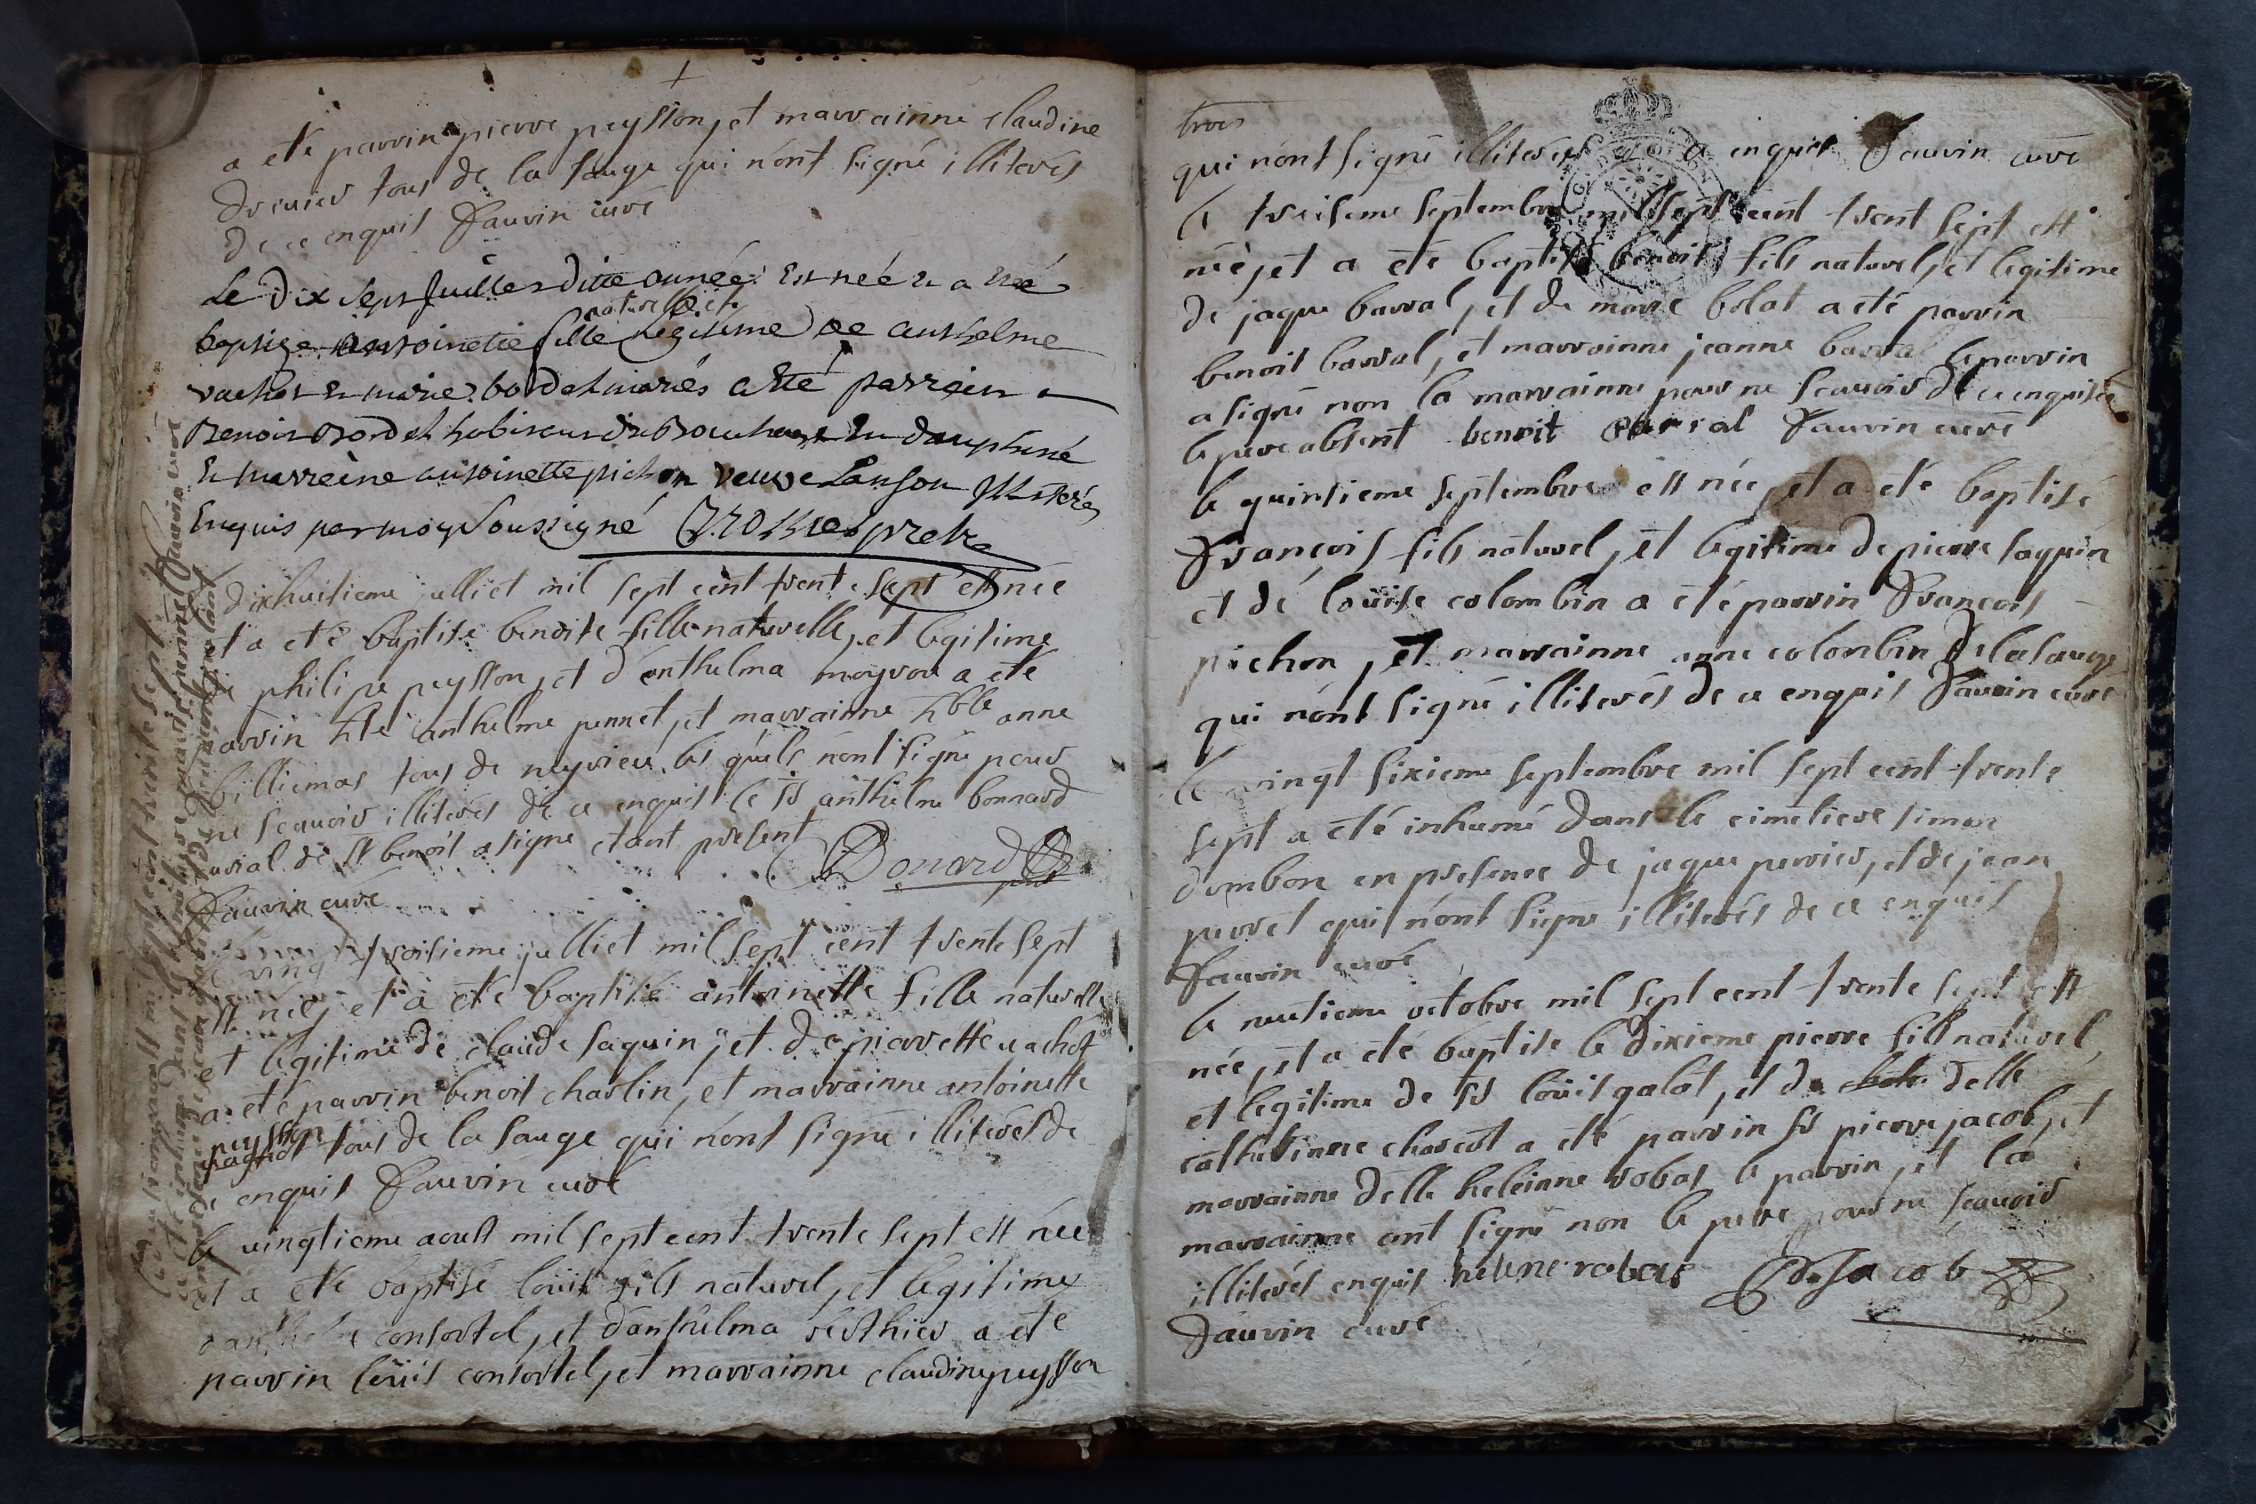 a eté parrin pierre peysson, et marrainne claudine
drevier tous de la sauge qui n'ont signé illiterés
de ce enquis Fauvin curé
Le dix sept Juillet ditte année Est née et a été
naturelle et
baptizé antoinette fille Legitime de anthelme
vachot et marie bordel mariés a Eté parrein
Benoit Bordel habitant du Bouchage En dauphiné
Et marreine antoinette pichon veuve Lanson Illiterés
Enquis par moy Soussigné pretre
dixhuitieme julliet mil sept cent trente sept est née
et a eté baptisé benoite fille naturelle, et legitime
de philipe peysson, et d'enthelma moyrou a eté
parrin hle anthelme pennet, et marrainne hble anne
billiemas tous de neyrieu les quels n'ont signé pour
ne scauoir illiterés de ce enquis le sr anthelme bonnard
curial de st benoit a signé etant present
Bonard
Fauvin curé
le vingt troisieme julliet mil sept cent trente sept
est née, et a eté baptisé antoinette fille naturelle
et legitime de claude saquin, et de pierrette vachot
a eté parrin benoit charlin, et marrainne antoinette
peysson
tous de la sauge qui n'ont signé illiterés de
ce enquis Fauvin curé
le vingtieme aoust mil sept cent trente sept est née
et a eté baptisé louis fils naturel, et legitime
consortel, et d'anthelma berthier a eté
parrin louis consortel, et marrainne claudine peysson
trois
qui n'ont signé illiterés de ce enquis Fauvin curé
le treiseme septembre mil sept cent trent sept est
néé, et a eté baptisé benoit fils naturel, et legitime
de jaque barral, et de marie bolat a eté parrin
benoit barral, et marrainne jeanne barral le parrin
a signé non la marrainne pour ne scauoir de ce enquise
le pere absent benoit barral Fauvin curé
le quinsieme septembre est née, et a eté baptisé
François fils naturel, et legitime de pierre saquin
et dé louise colombin a eté parrin François
pichon, et marrainne anne colonbin de la sauge
qui n'ont signé illiterés de ce enquis Fauvin curé
le vingt sixieme septembre mil sept cent trente
sept a eté inhumé dans le cimetiere simon
dombon en presence de jaque perrier, et de jean
perret qui n'ont signe illiterés de ce enquis
Fauvin curé
le neutieme octobre mil sept cent trente sept est
née, et a eté baptise le dixieme pierre fils naturel,
et legitime de sr louis galot, et de delle
catherinne charcot a eté parrin sr pierre jacob, et
marrainne delle heleinne robas le parrin, et la
marrainne ont signé non le pere pour ne scauoir
illiterés enquis helene robas Jacob
Fauvin curé